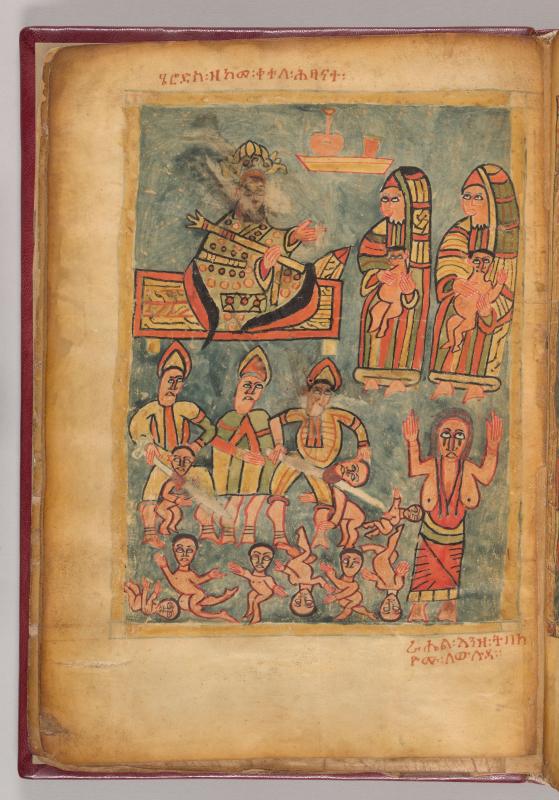 ሄሮድስ፡ዘከመ፡ቀተለ፡ሕፃናተ፡
ራሔል፡እንዘ፡ትበኪ
ዮሙ፡ለውሉዳ፡፡